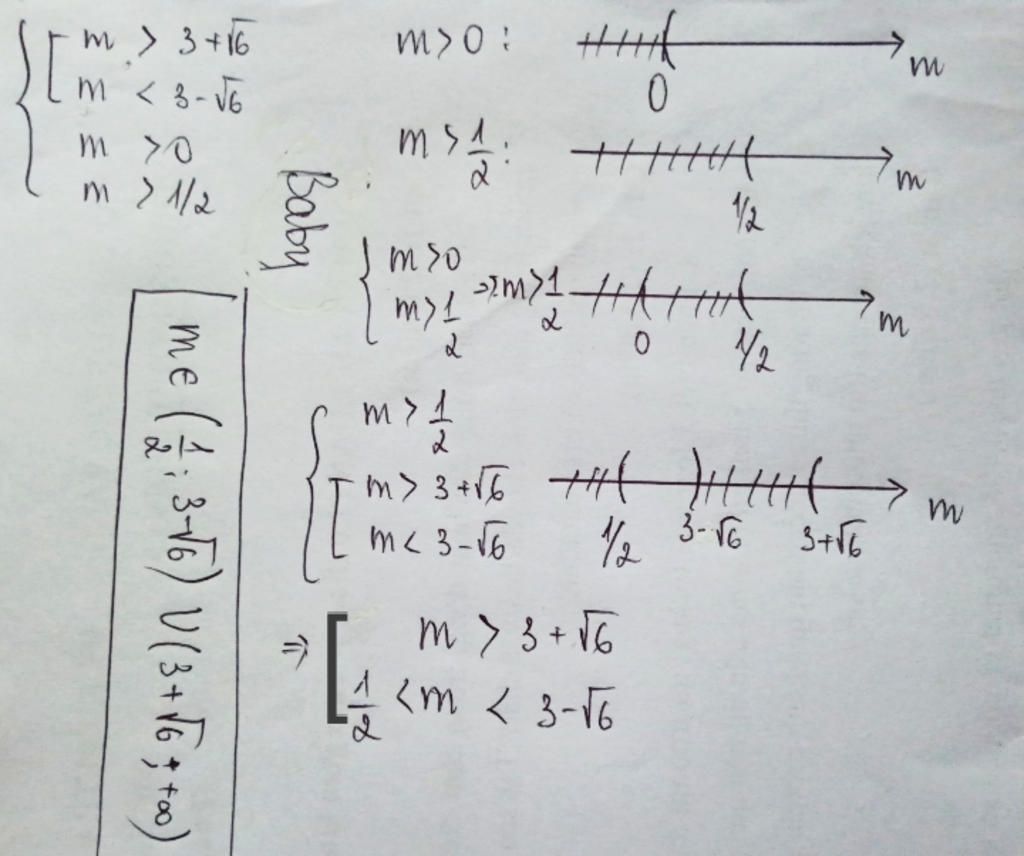 m > 3 + √6
m < 3 - √6
m > 0
m > 1/2
m > 0 :
m
0
m > 1/2 :
m
1/2
Baby
m > 0
m > 1/2
=> m > 1/2
m
0
1/2
m > 1/2
m > 3 + √6
m < 3 - √6
m
1/2
3 - √6
3 + √6
=> m > 3 + √6
1/2 < m < 3 - √6
m ∈ (1/2; 3 - √6) U (3 + √6; +∞)